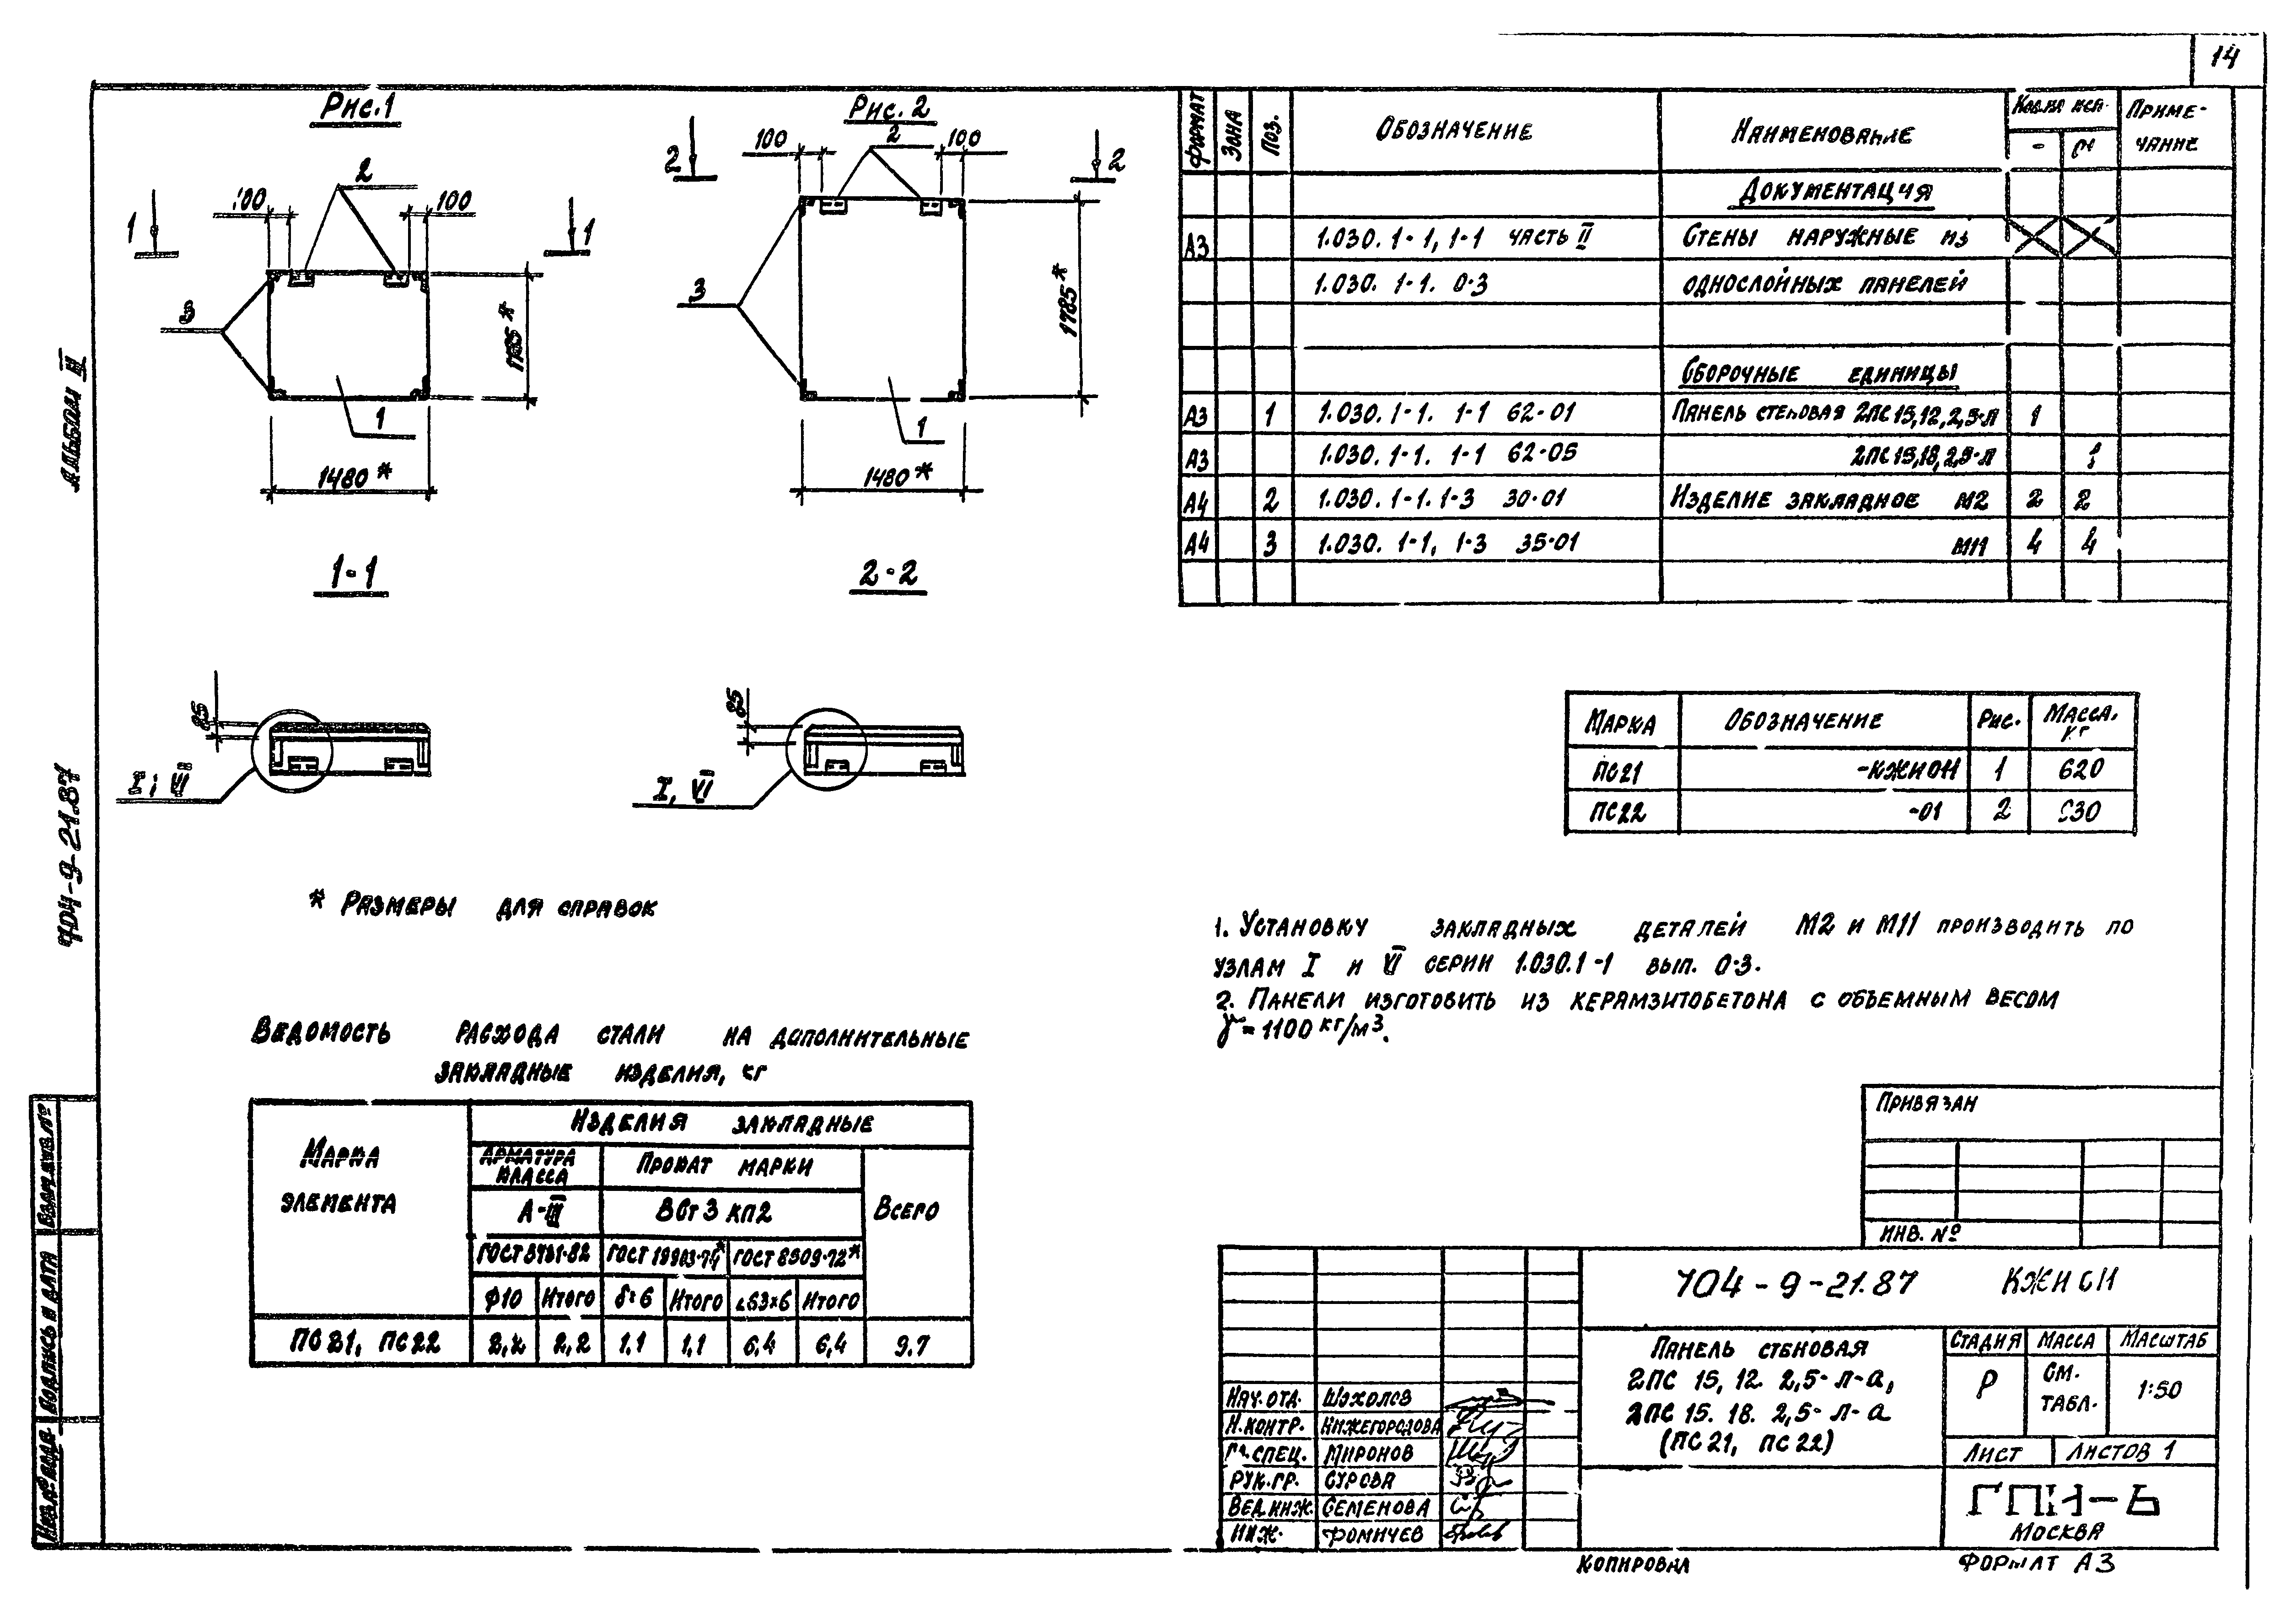 14
Рис.1
Рис. 2
100
2
100
1
1
3
1185*
1
1480*
100
2
100
2
2
3
1785*
1
1480*
1-1
2-2
25
I; VI
25
I, VI
* Размеры для справок
Формат
Зона
Поз.
Обозначение
Наименование
Приме-
чание
-
Документация
А3 1.030.1-1, 1-1 часть II Стены наружные из
1.030.1-1. 0-3 однослойных панелей
Сборочные единицы
А3 1 1.030.1-1. 1-1 62-01 Панель стеновая 2ПС15,12,2,5-л 1
А3 1.030.1-1. 1-1 62-05 2ПС15,18,2,5-л 1
А4 2 1.030.1-1. 1-3 30-01 Изделие закладное М2 2 2
А4 3 1.030.1-1, 1-3 35-01 М11 4 4
Марка Обозначение Рис. Масса, кг
ПС21 -КЖИ 1 620
ПС22 -01 2
1. Установку закладных деталей М2 и М11 производить по
узлам I и VI серии 1.030.1-1 вып. 0-3.
2. Панели изготовить из керамзитобетона с объемным весом
γ=1100 кг/м3.
Ведомость расхода стали на дополнительные
закладные изделия, кг
Марка
элемента
Изделия закладные
Арматура
класса
Прокат марки
Всего
А-III
ВСт3 кп2
ГОСТ 5781-82 ГОСТ 19903-74* ГОСТ 8509-72*
Ф10 Итого δ=6 Итого ∟63×6 Итого
ПС21, ПС22 2,2 2,2 1,1 1,1 6,4 6,4 9.7
Альбом II
704-9-21.87
Взам.инв.№
Подпись и дата
Инв.№ подл.
Привязан
Инв. №
704-9-21.87 КЖИ
Панель стеновая
2ПС 15, 12. 2,5-л-а,
2ПС 15. 18. 2,5-л-а
(ПС21, ПС22)
Стадия Масса Масштаб
Р См.
табл. 1:50
Лист Листов 1
Нач.отд. Шохолов
Н.контр. Нижегородова
Гл.спец. Миронов
Рук.гр. Сурова
Вед.инж. Семенова
Инж. Фомичев
Москва
Копировал Формат А3